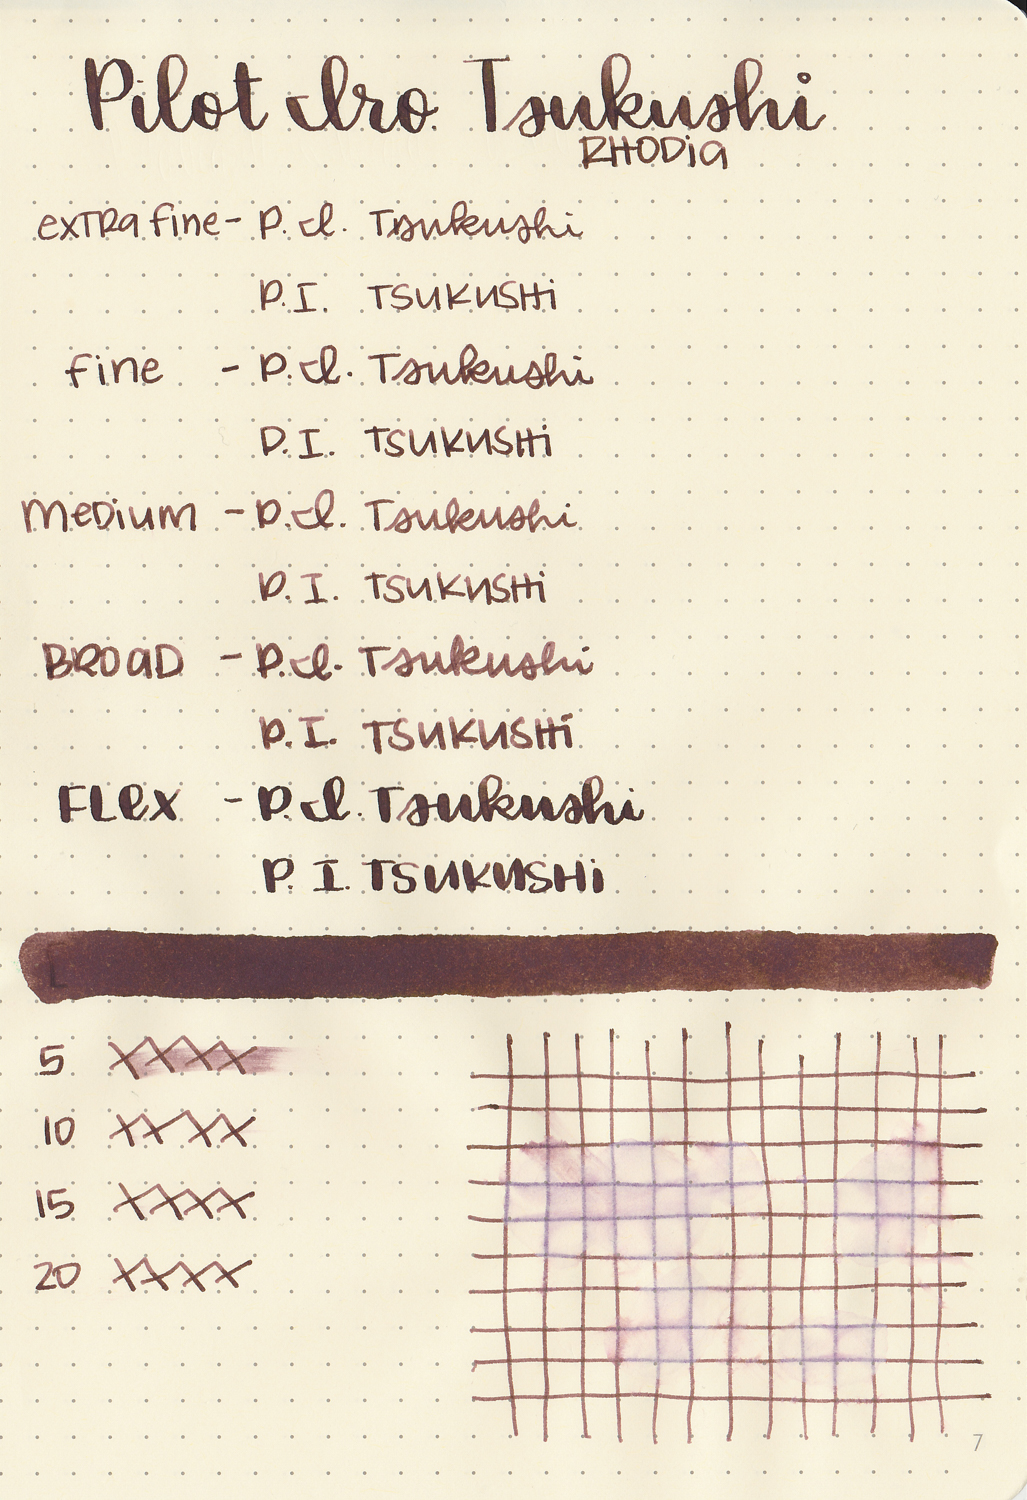 Pilot Iro Tsukushi
RHODIA
extra fine - P.I. Tsukushi
P.I. TSUKUSHi
fine - P.I. Tsukushi
P.I. TSUKUSHi
MeDium - P.I. Tsukushi
P.I. TSUKUSHi
BROAD - P.I. Tsukushi
P.I. TSUKUSHi
FLex - P.I. Tsukushi
P. I. TSUKUSHi
5 XXXX
10 XXXX
15 XXXX
20 XXXX
7